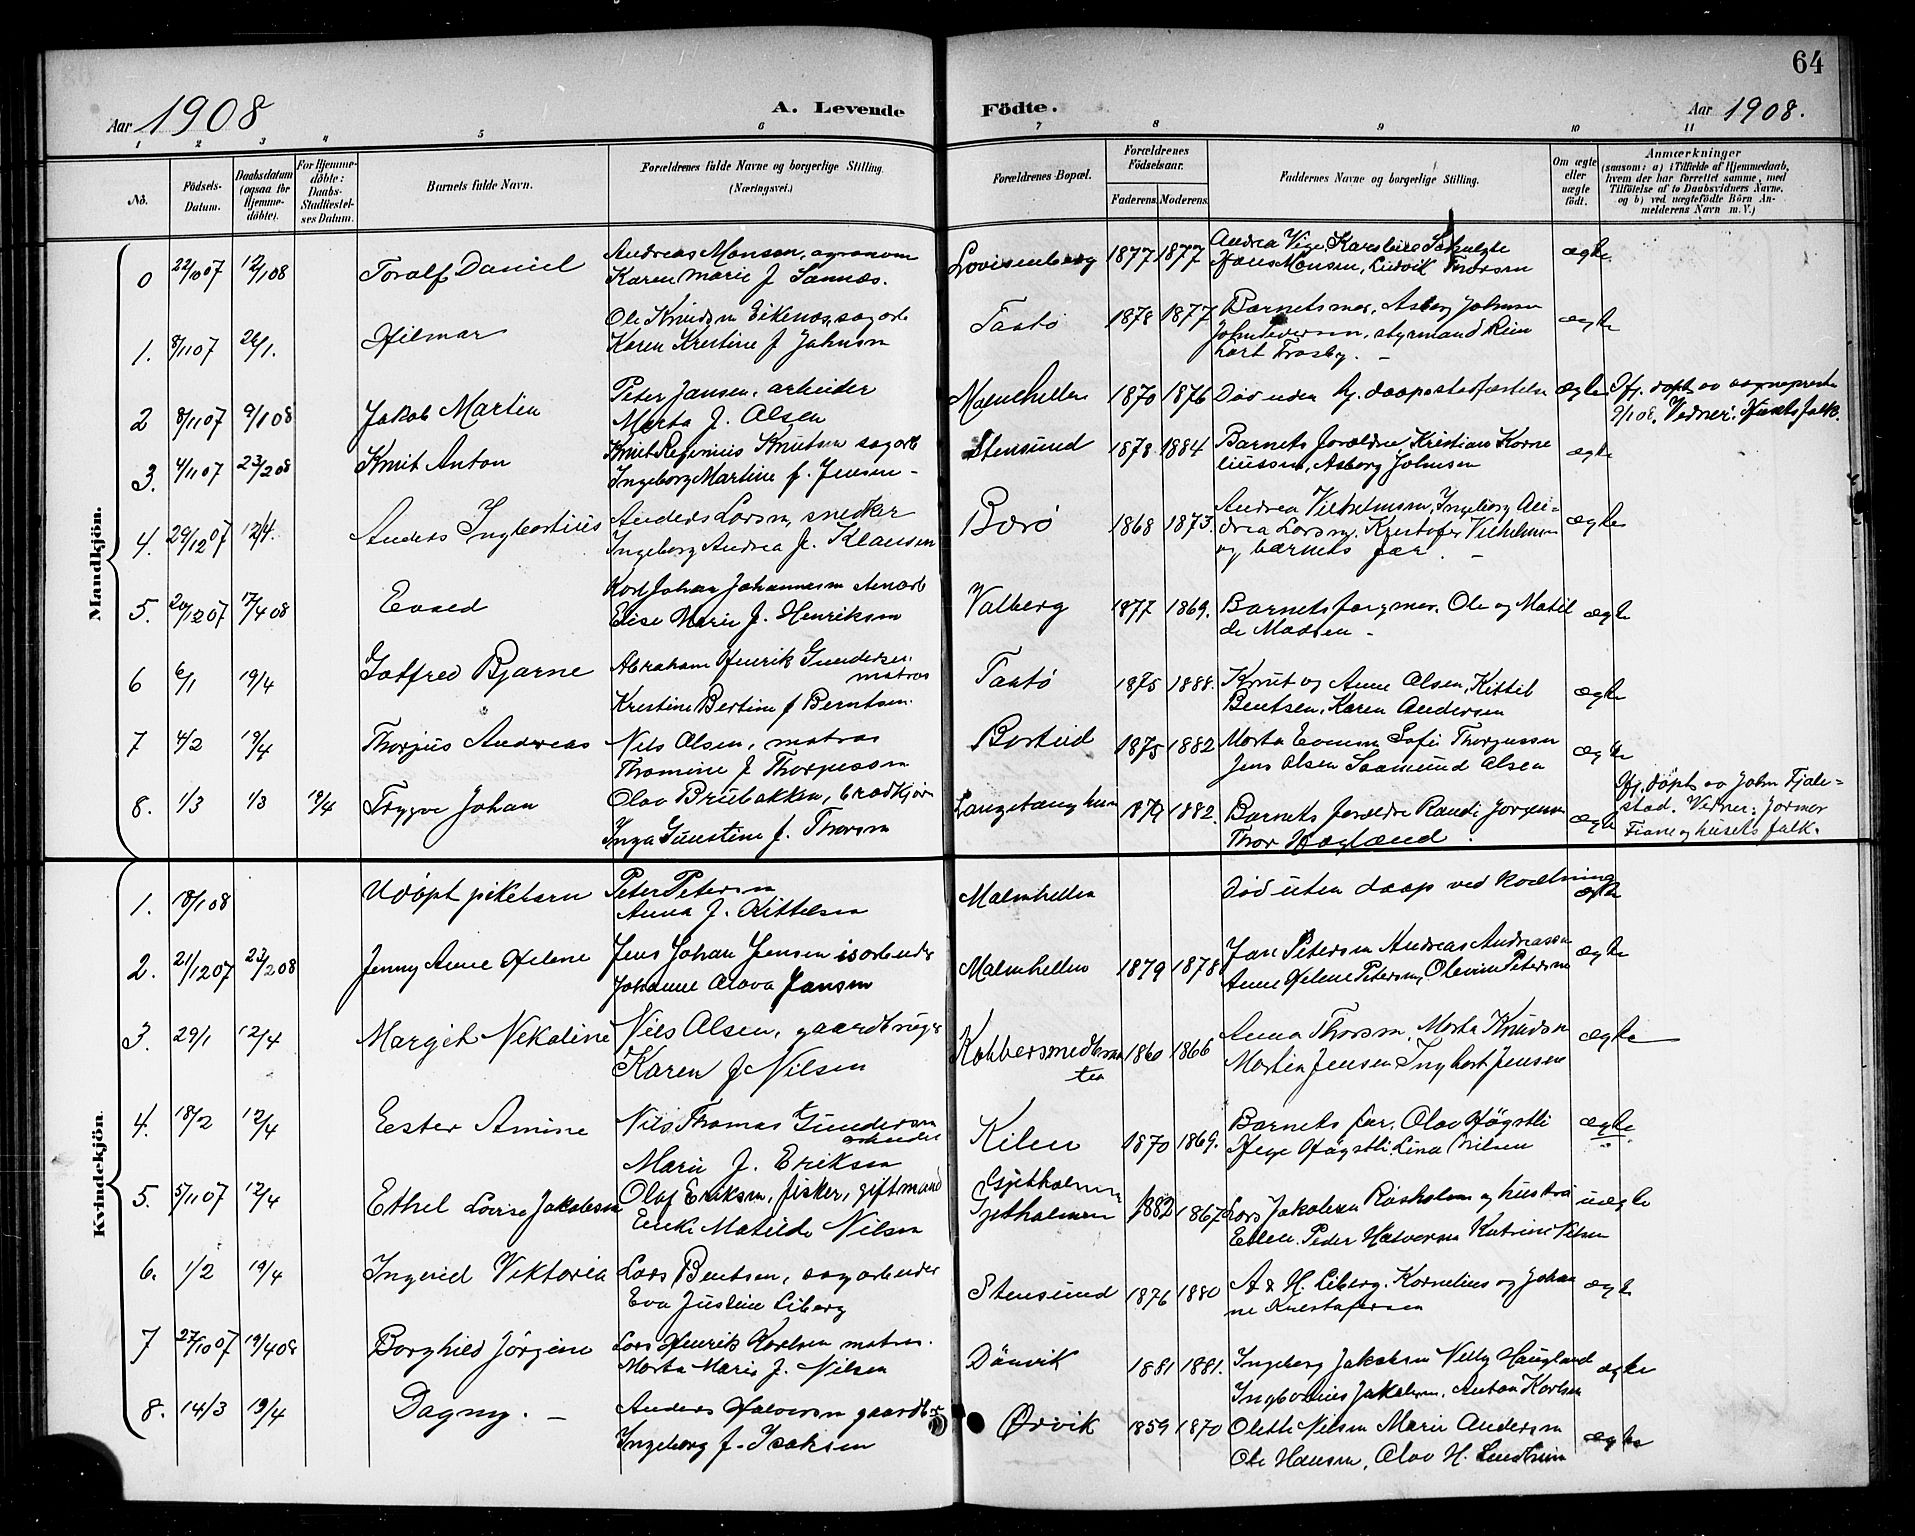 64
Aar 1908
A. Levende
Födte.
Aar 1908.
1 2 3 4 5 6 7 8 9 10 11
No.
Födsels-Datum.
Daabsdatum (ogsaa for Hjemme-döbte).
For Hjemme-döbte: Daabs-Stadfæstel-ses Datum.
Barnets fulde Navn.
Forældrenes fulde Navne og borgerlige Stilling. (Næringsvei.)
Forældrenes Bopæl.
Forældrenes Födselsaar.
Faderens. Moderens.
Faddernes Navne og borgerlige Stilling.
Om ægte eller uægte födt.
Anmærkninger
(saasom: a) i Tilfælde af Hjemmedaab, hvem der har forrettet samme, med Tilföielse af to Daabsvidners Navne, og b) ved uægtefödte Börn Anmelderens Navn m. V.)
Mandkjön.
0 22/10 07 12/1 08 Toralf Daniel Andreas Monsen, agronom Lovisenberg 1877 1877 Andrea Vige, ægte
Karen Marie f. Sannæs. Hans Monsen, Ludvik Thorsen
1. 8/11 07 26/1. Hilmar Ole Knudsen Eikenæs, sagarb Tastö 1878 1877 Barnets mor, Asborg Johnsen ægte
Karen Kristine f Johnsen styrmand Rein
hart Frosby. –
2 8/11 07 9/1 08 Jakob Martin Peter Jansen, arbeider Malmhellen 1870 1876 Död uden daapsstadfæstelse ægte Hj. döpt av sogneprest
Marta f. Olsen 9/1 08. Vidner: Husets folk.
3. 4/11 07 23/2 08 Knut Anton Knutsen sagarb Stensund 1878 1884 Barnets foreldre, Kristian Korne ægte
Ingeborg Martine f. Jensen – liussen, Asborg Johnsen
4. 29/12 07 12/4. Anders Ingbertius Anders Larsen, snedker Barö 1868 1873. Andrea Vilhelmsen, Ingeborg ægte
Ingeborg Andrea f. Klausen Larsen, Kristofer Vilhelmsen
og barnets far. –
5. 20/12 07 17/4 08 Evald Karl Johan Johannesen Valberg 1877 1869. Barnets far og mor. Ole og Matil ægte
Elise Marie f. Henriksen de Madsen –
6 6/1 19/4 Gotfred Bjarne Abraham Henrik Gundersen Tastö 1875 1888. Knut og Anne Olsen, Kittil ægte
matros
Kristine Bertine f Berntsen. Bentsen, Karen Andersen
7 4/2 19/4 Thorjus Andreas Nils Olsen, matros 1875 1882 Marta Evensen Sofie Thorjussen ægte
Thomine f Thorjussen Jens Olsen Saamund Olsen
8. 1/3 1/3 19/4 Trygve Johan Olav Brubakken, brödkjör 1879 1882. Barnets foreldre Randi Jorgensen ægte Hj. döpt av John Fjale-
Inga Gunstine f. Thorsen Thor Hægland. stad. Vidner: Jarmor
Fiane og husets folk.
Kvindekjön
1. 18/1 08 Udöpt pikebarn Peter Petersen Malmhellen Död uten daap ved kvælning ægte
Anna f. Kittelsen
2. 21/12 07 23/2 08 Jenny Anne Helene Jens Johan Jensen isarbeider Malmhellen 1879 1878 Petersen Andreas Andreassen ægte
Johanne Olava Jansen Anne Helene Petersen, Petersen
3. 29/1 12/4 Margit Nekoline Nils Olsen, gaardbruger Kobbersmedbraa 1860 1866 Anna Thorsen, Marta Knudsen ægte
Karen f Nilsen ten Martin Jensen Ingbort Jensen
4. 18/2 12/4 Ester Amine Nils Thomas Gundersen Kilen 1870 1869. Barnets far, Olav Högstli ægte
arbeider
Marie f. Eriksen Hege Högstli Lina Nilsen
5. 5/11 07 12/4 Ethel Lovise Jakobsen Olaf Eriksen, fisker, gift mand Gjetholmen
Gjetholmen 1882 1867 Lars Jakobsen Röisholmen og hustru uægte
Matilde Nilsen Ellen. Peder Halvorsen Katrine Nilsen
6. 1/2 19/4 Ingerid Viktoria Lars Bentsen, sagarbeider Stensund 1876 1880 A & H. Liberg. Kornelius og Johan ægte
Eva Justine Liberg ne Kristofersen
7 27/10 07 19/4 08 Borghild Jörgine Lars Henrik Karlsen matros. Dönvik 1881 1881. Ingeborg Jakobsen Nelly Haugland ægte
Marta Marie f. Nilsen Jakobsen, Anton Karlsen
8. 14/3 19/4 Dagny. – Anders Halvorsen gaardbr Örvik 1859 1870 Olette Nilsen Marie Andersen ægte
Ingeborg f. Isaksen Ole Hansen, Olav H. Sundheim